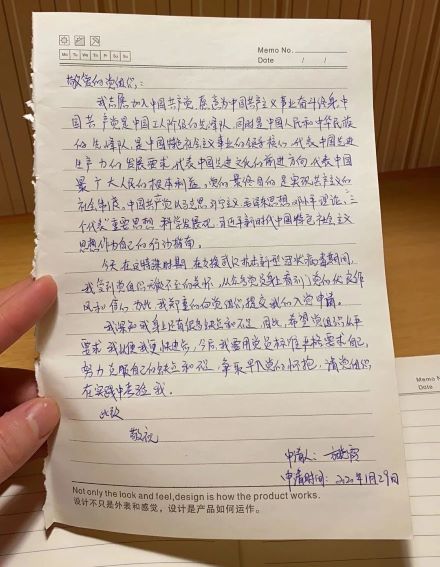 Memo No.
Mo Tu We Th Fr Sa Su
Date / /
敬爱的党组织:
我志愿加入中国共产党,愿意为中国共产主义事业奋斗终身。中
国共产党是中国工人阶级的先锋队,同时是中国人民和中华民族
的先锋队,是中国特色社会主义事业的领导核心,代表中国先进
生产力的发展要求,代表中国先进文化的前进方向,代表中国
最广大人民的根本利益。党的最终目的是实现共产主义的
社会制度。中国共产党以马克思列宁主义、毛泽东思想、邓小平理论、三
个代表重要思想、科学发展观、习近平新时代中国特色社会主义
思想作为自己的行动指南。
今天在这特殊时期,在支援武汉抗击新型冠状病毒期间,
我受到党组织无微不至的关怀,从众多党员身上看到了党的优良作
风和信仰,为此我郑重的向党组织提交我的入党申请。
我深知我身上还有很多缺点和不足,因此,希望党组织从严
要求我以便我更快进步,今后,我要用党员标准严格要求自己,
努力克服自己的缺点和不足,争取早入党的怀抱,请党组织
在实践中考验我。
此致
敬礼
申请人:
申请时间:2020年1月29日
Not only the look and feel,design is how the product works.
设计不只是外表和感觉,设计是产品如何运作。
Memo N
Date